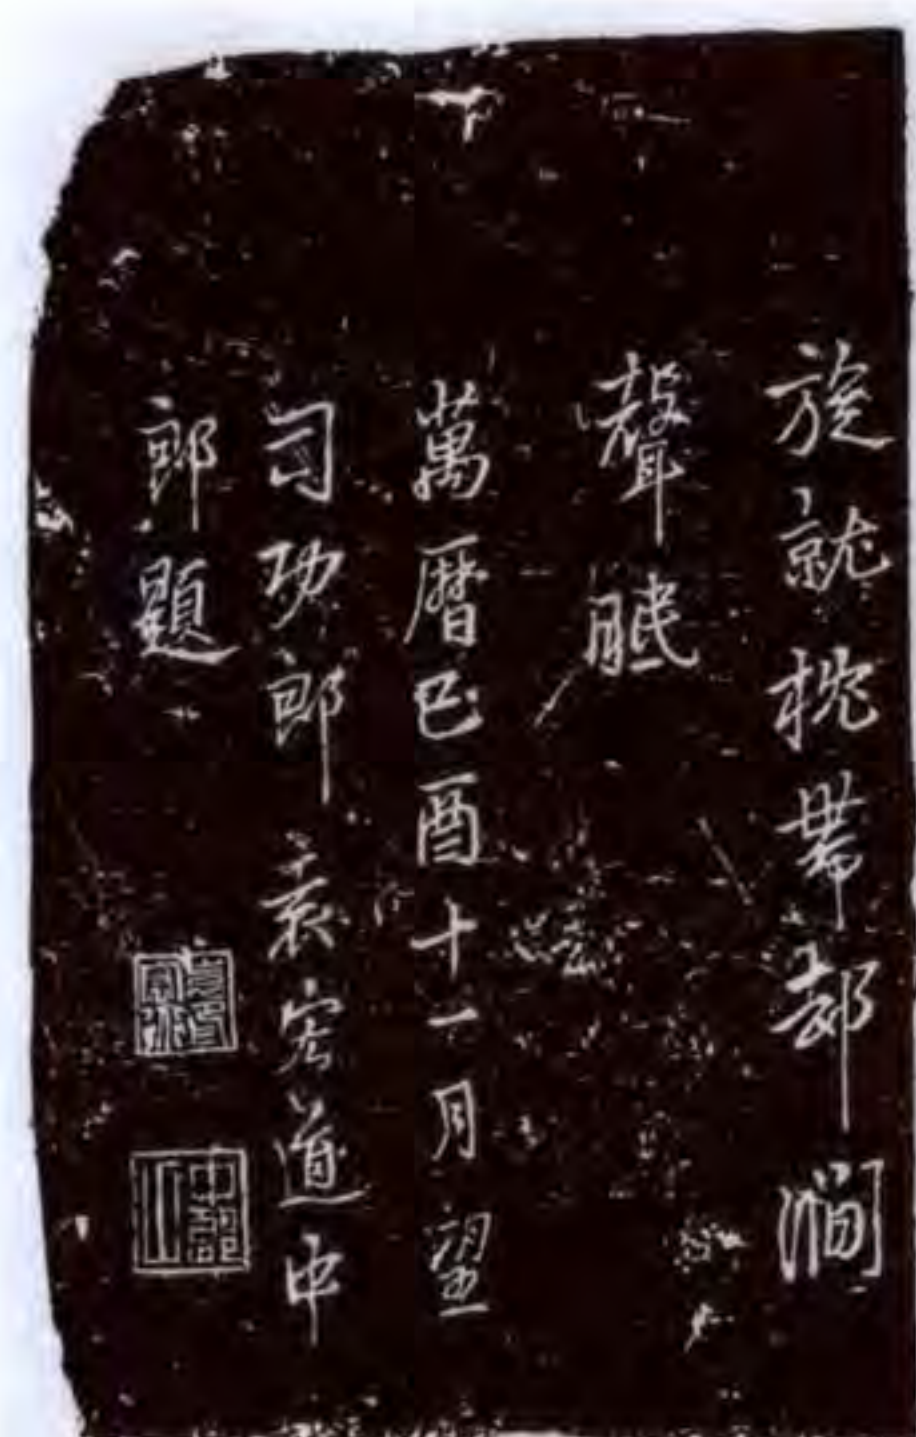 旋就枕帶却澗
聲眠
萬曆己酉十一月望
司功郎袁宏道中
郎題